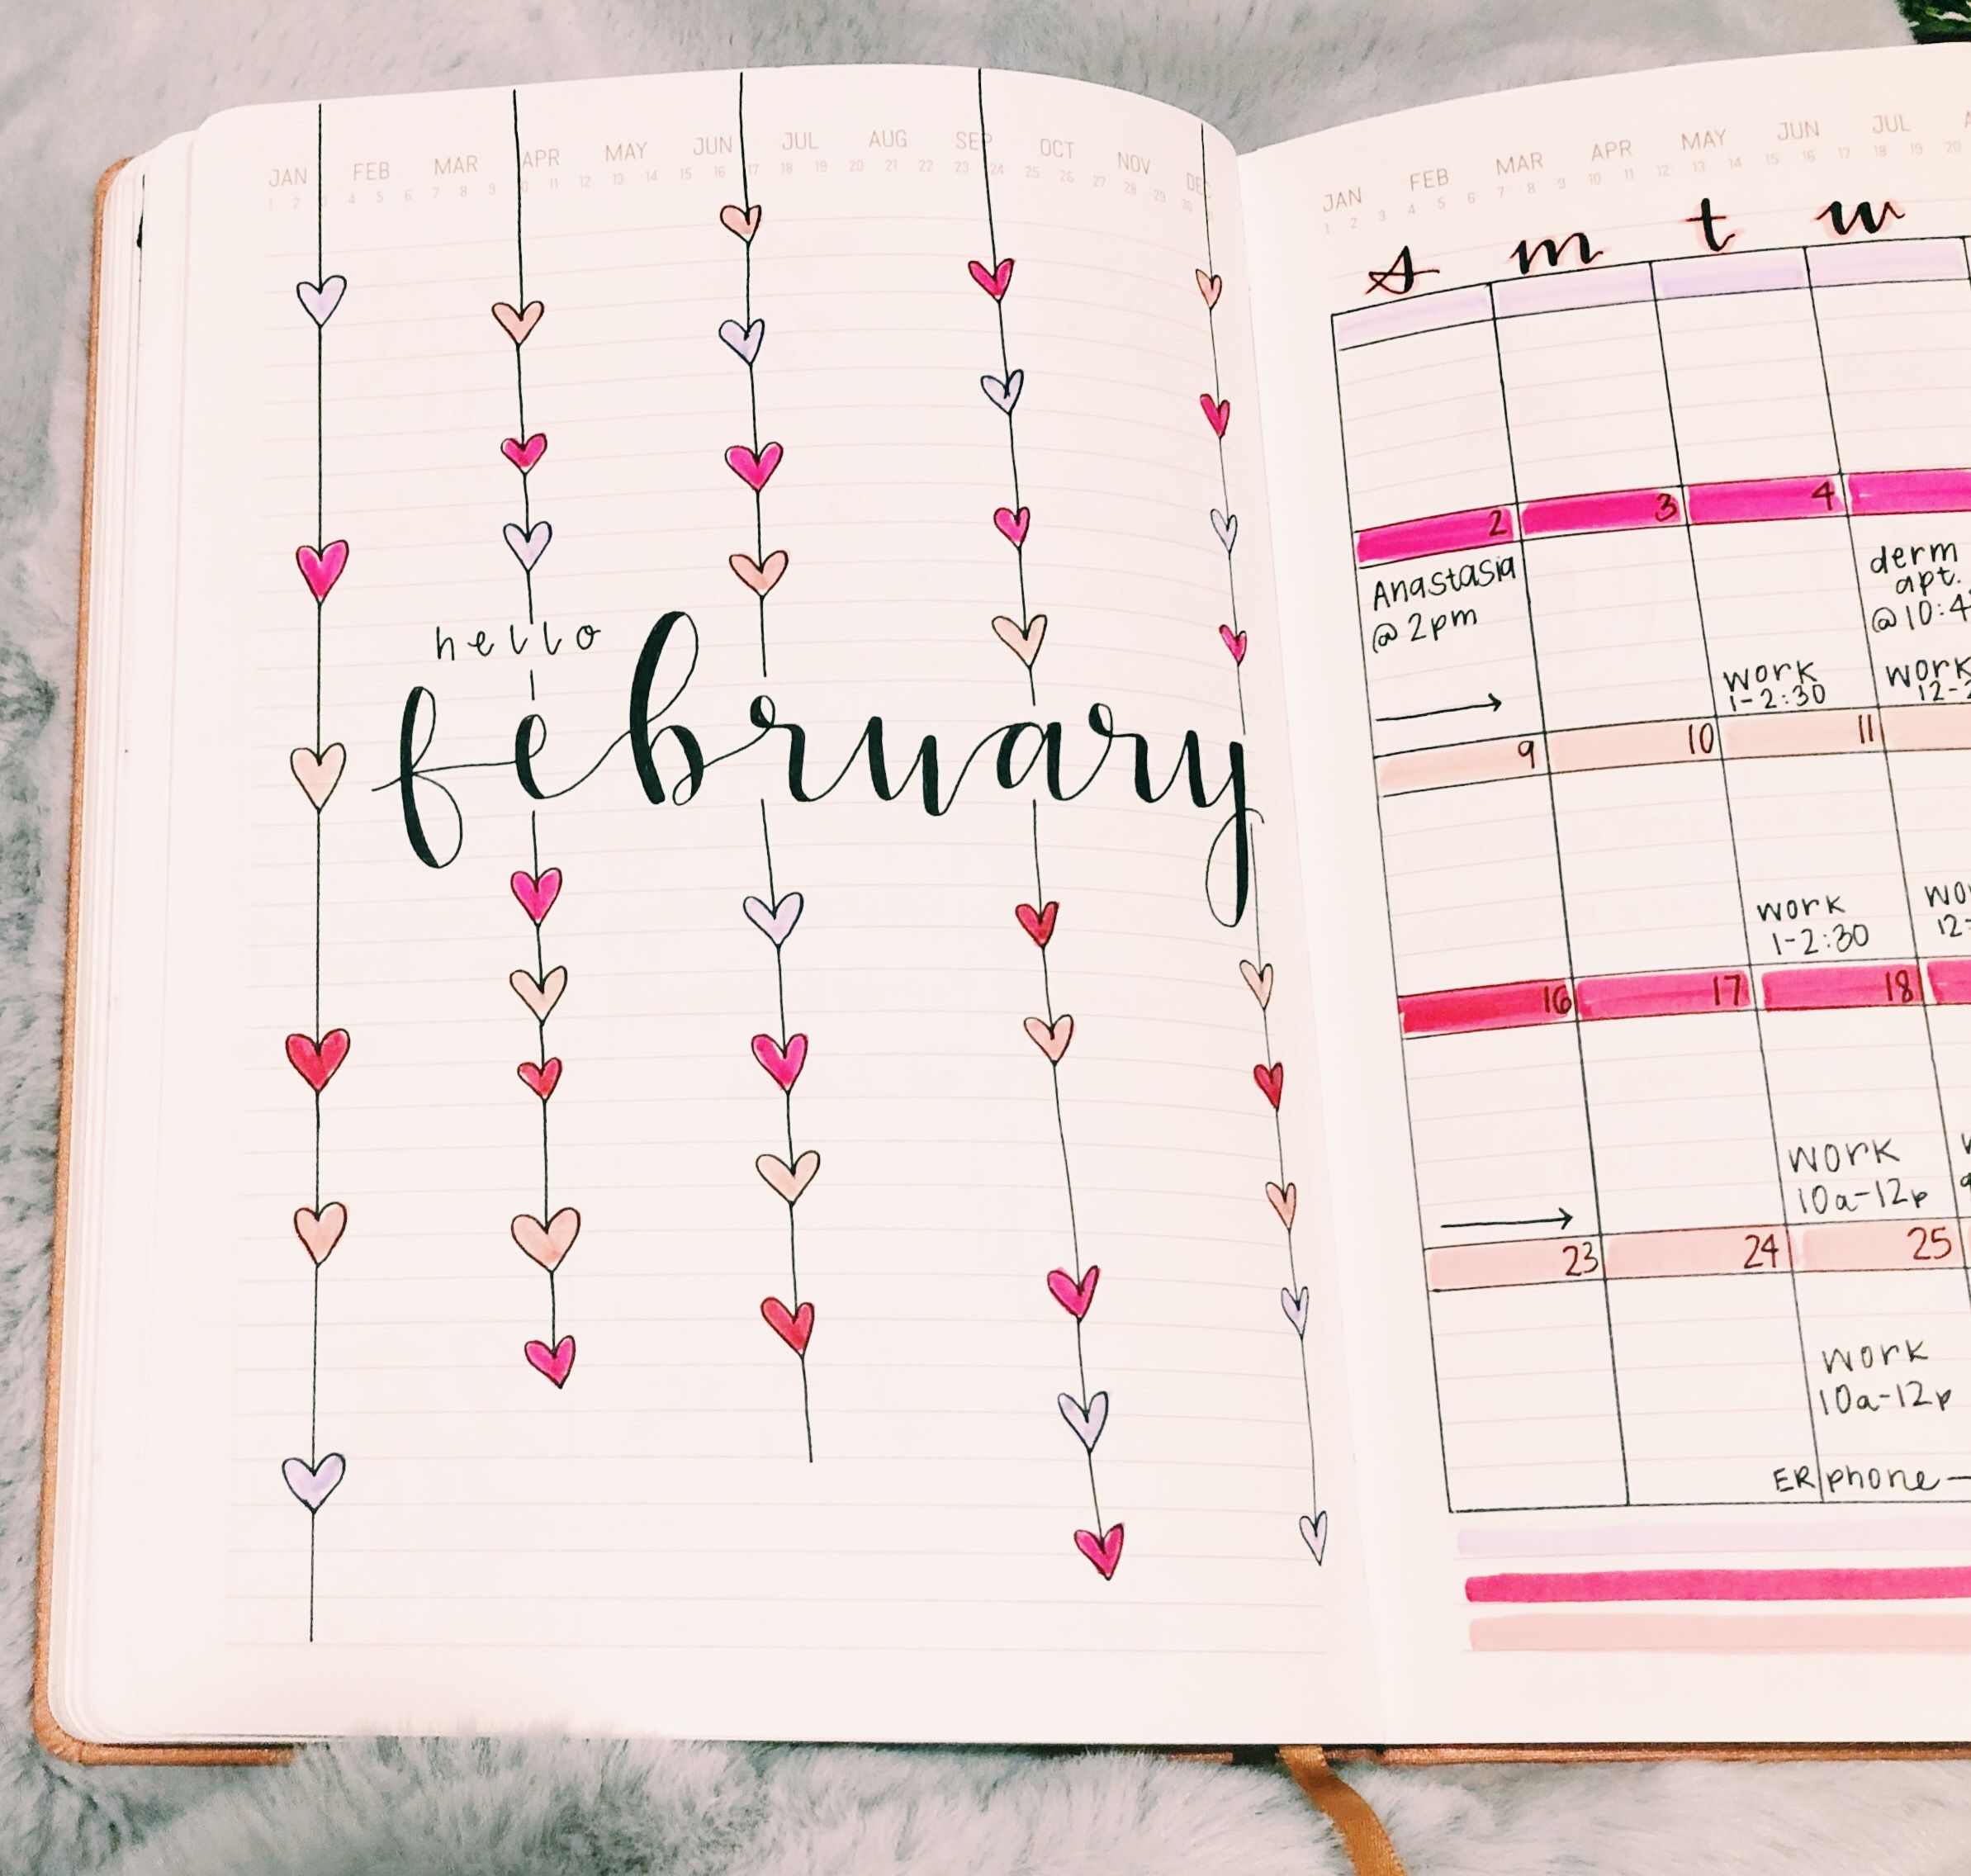 JAN FEB MAR APR MAY JUN JUL AUG SEP OCT NOV DEC
1 2 3 4 5 6 7 8 9 10 11 12 13 14 15 16 17 18 19 20 21 22 23 24 25 26 27 28 29 30
hello
february
JAN FEB MAR APR MAY JUN JUL
1 2 3 4 5 6 7 8 9 10 11 12 13 14 15 16 17 18 19 20
s m t w
2 3 4
Anastasia
@ 2pm
work
1-2:30
derm
apt.
@ 10:4
work
12-2
9 10 11
work
1-2:30
12-
16 17 18
work
10a-12p
23 24 25
work
10a-12p
ER phone